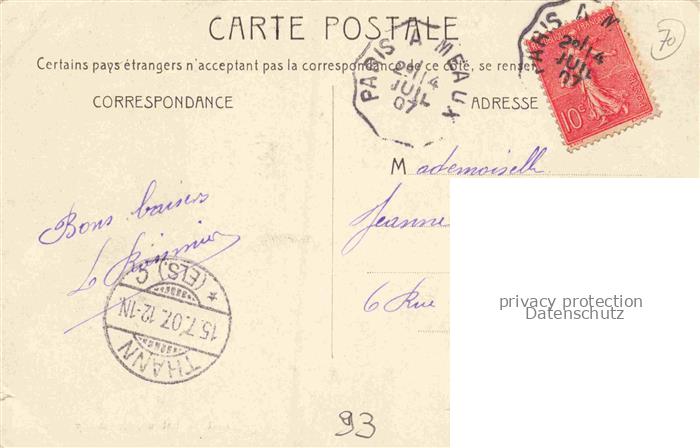 CARTE POSTALE
Certains pays étrangers n'acceptant pas la correspondance de ce côté, se rensei
CORRESPONDANCE
ADRESSE
PARIS A MEAUX
2e/14
JUIL
07
PARIS A M
2e/14
JUIL
07
FRANÇAISE
10c
70
Mademoiselle
Jeanne
6 Rue
Bons baisers
THANN
15.7.07.12-1N
* (ELS.) C
privacy protection
Datenschutz
93